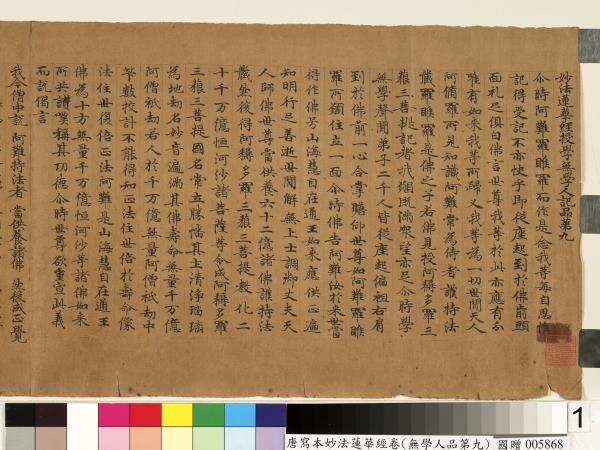 妙法蓮華經授學無學人記品第九
尒時阿難羅睺羅而作是念我等每自思惟
設得受記不亦快乎即從座起到於佛前頭
面礼足俱白佛言世尊我等於此亦應有分
唯有如來我等所歸又我等為一切世間天人
阿脩羅所見知識阿難常為侍者護持法
藏羅睺羅是佛之子若佛見授阿耨多羅三
藐三菩提記者我願既滿衆望亦足尒時學
無學聲聞弟子二千人皆從座起偏袒右肩
到於佛前一心合掌瞻仰世尊如阿難羅睺
羅所願住立一面尒時佛告阿難汝於來世當
得作佛号山海慧自在通王如來應供正遍
知明行足善逝世間解無上士調御丈夫天
人師佛世尊當供養六十二億諸佛護持法
藏然後得阿耨多羅三藐三菩提教化二
十千万億恒河沙諸菩薩等令成阿耨多羅
三藐三菩提國名常立勝幡其土清淨瑠璃
為地劫名妙音遍滿其佛壽命無量千万億
阿僧祇劫若人於千万億無量阿僧祇劫中
筭數挍計不能得知正法住世倍於壽命像
法住世復倍正法阿難是山海慧自在通王
佛為十方無量千万億恒河沙等諸佛如來
所共讚嘆稱其功德尒時世尊欲重宣此義
而說偈言
我今僧中說 阿難持法者 當供養諸佛 然後成正覺
1
唐寫本妙法蓮華經卷(無學人品第九) 國贈 005868